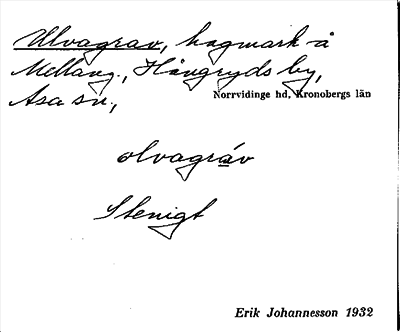 Ulvagrav, hagmark å
Mellang., Hångryds by,
Asa sn,
Norrvidinge hd, Kronobergs län
olvagráv
Stenigt
Erik Johannesson 1932